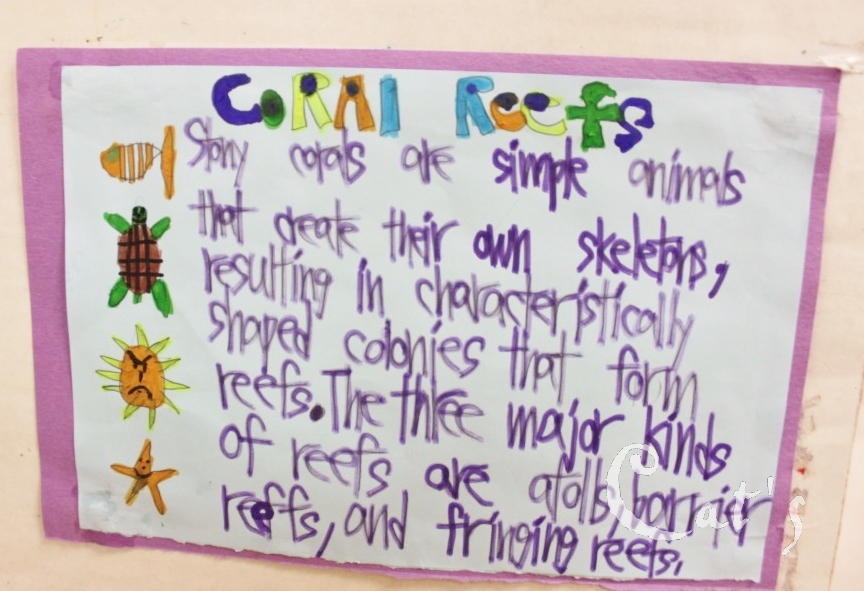 CORAl Reefs
Stony corals are simple animals
that create their own skeletons,
resulting in characteristically
shaped colonies that form
reefs. The three major kinds
of reefs are atolls, barrier
reffs, and fringing reefs.
Cat's